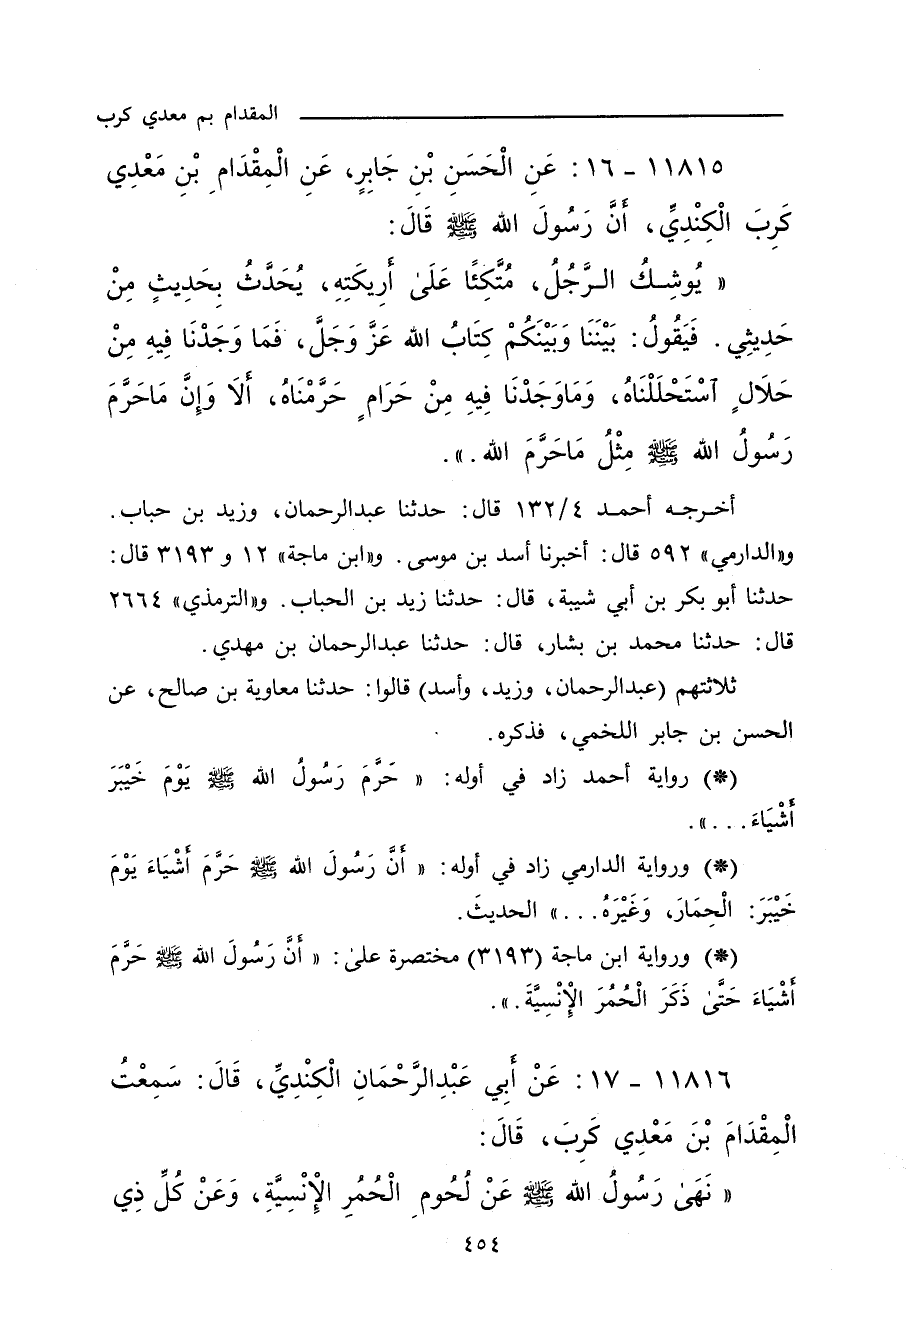 المقدام بم معدي كرب
١١٨١٥ - ١٦ : عَنِ الْحَسَنِ بْنِ جَابِرٍ، عَنِ الْمِقْدَامِ بْنِ مَعْدِي
كَرِبَ الْكِنْدِيِّ، أَنَّ رَسُولَ الله ﷺ قَالَ:
« يُوشِكُ الرَّجُلُ، مُتَّكِئًا عَلَىٰ أَرِيكَتِهِ، يُحَدَّثُ بِحَدِيثٍ مِنْ
حَدِيثِي. فَيَقُولُ: بَيْنَنَا وَبَيْنَكُمْ كِتَابُ الله عَزَّ وَجَلَّ، فَمَا وَجَدْنَا فِيهِ مِنْ
حَلَالٍ ٱسْتَحْلَلْنَاهُ، وَمَاوَجَدْنَا فِيهِ مِنْ حَرَامٍ حَرَّمْنَاهُ، أَلَا وَإِنَّ مَاحَرَّمَ
رَسُولُ الله ﷺ مِثْلُ مَاحَرَّمَ الله.».
أخرجه أحمد ١٣٢/٤ قال: حدثنا عبدالرحمان، وزيد بن حباب.
و«الدارمي» ٥٩٢ قال: أخبرنا أسد بن موسى. و«ابن ماجة» ١٢ و ٣١٩٣ قال:
حدثنا أبو بكر بن أبي شيبة، قال: حدثنا زيد بن الحباب. و«الترمذي» ٢٦٦٤
قال: حدثنا محمد بن بشار، قال: حدثنا عبدالرحمان بن مهدي.
ثلاثتهم (عبدالرحمان، وزيد، وأسد) قالوا: حدثنا معاوية بن صالح، عن
الحسن بن جابر اللخمي، فذكره.
(*) رواية أحمد زاد في أوله: « حَرَّمَ رَسُولُ الله ﷺ يَوْمَ خَيْبَرَ
أَشْيَاءَ...».
(*) ورواية الدارمي زاد في أوله: « أَنَّ رَسُولَ الله ﷺ حَرَّمَ أَشْيَاءَ يَوْمَ
خَيْبَرَ: الْحِمَارَ، وَغَيْرَهُ...» الحديثَ.
(*) ورواية ابن ماجة (٣١٩٣) مختصرة علىٰ: « أَنَّ رَسُولَ الله ﷺ حَرَّمَ
أَشْيَاءَ حَتَّىٰ ذَكَرَ الْحُمُرَ الْإِنْسِيَّةَ.».
١١٨١٦ - ١٧ : عَنْ أَبِي عَبْدِالرَّحْمَانِ الْكِنْدِيِّ، قَالَ: سَمِعْتُ
الْمِقْدَامَ بْنَ مَعْدِي كَرِبَ، قَالَ:
« نَهَىٰ رَسُولُ الله ﷺ عَنْ لُحُومِ الْحُمُرِ الْإِنْسِيَّةِ، وَعَنْ كُلِّ ذِي
٤٥٤